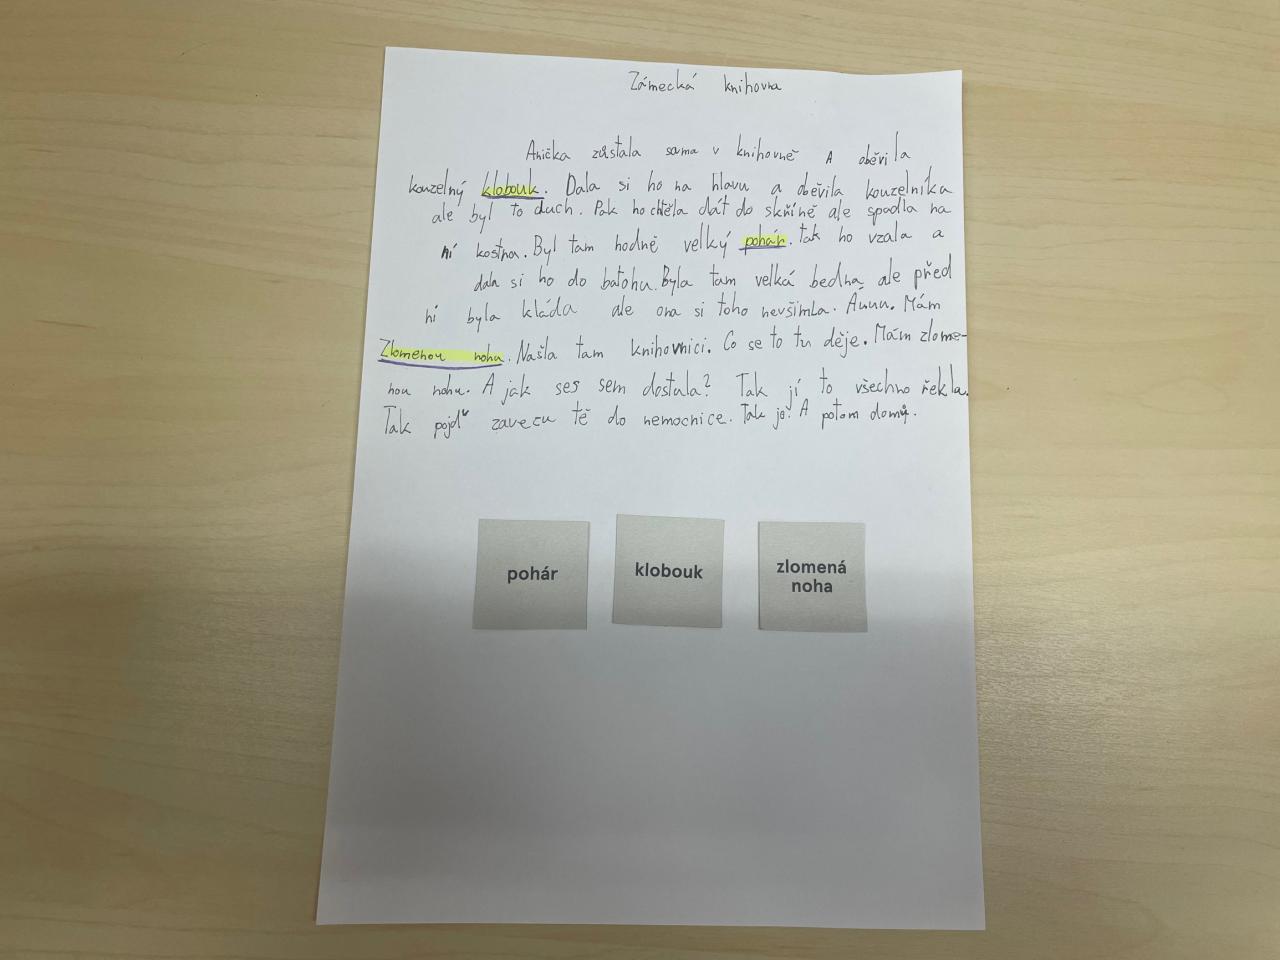 Zámecká knihovna
Anička zůstala sama v knihovně A oběvila
kouzelný klobouk. Dala si ho na hlavu a oběvila kouzelníka
ale byl to duch. Pak ho chtěla dát do skříně ale spadla na
ní kostra. Byl tam hodně velký pohár. tak ho vzala a
dala si ho do batohu. Byla tam velká bedna, ale před
ní byla kláda ale ona si toho nevšimla. Áuuu. Mám
Zlomenou nohu. Našla tam knihovnici. Co se to tu děje. Mám zlome-
nou nohu. A jak ses sem dostala? Tak jí to všechno řekla.
Tak pojď zavezu tě do nemocnice. Tak jo! A potom domů.
pohár
klobouk
zlomená
noha